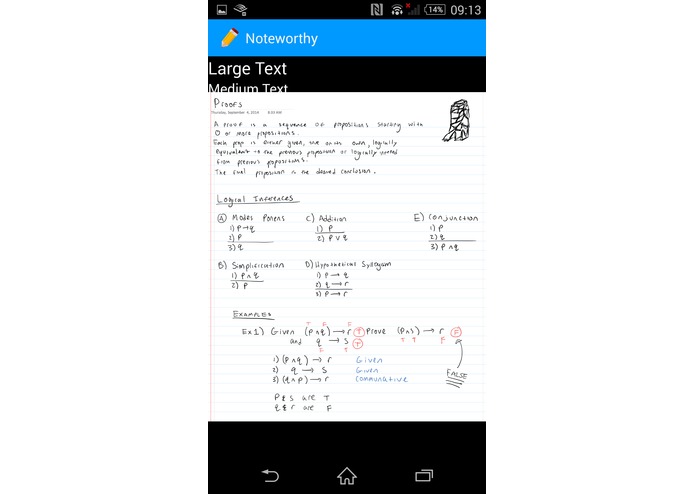 14% 09:13
Noteworthy
Large Text
Medium Text
Proofs
Thursday, September 4, 2014 8:03 AM
A proof is a sequence of propositions starting with
0 or more propositions.
Each prop is either given, true on its own, logically
equivalent to the previous proposition or logically
from previous propositions.
The final proposition is the desired conclusion.
Logical Inferences
A) Modes Ponens
1) P→q
2) P
3) q
C) Addition
1) P
2) P ∨ q
E) Conjunction
1) P
2) q
3) P ∧ q
B) Simplification
1) P ∧ q
2) P
D) Hypothetical Syllogism
1) P → q
2) q → r
3) P → r
EXAMPLES
T F F T F
Ex 1) Given (P∧q) → r T Prove (P∧S) → r F
and q → S T
F T
1) (P∧q) → r Given
2) q → S Given
3) (q∧P) → r Communative
FALSE
P & S are T
q & r are F